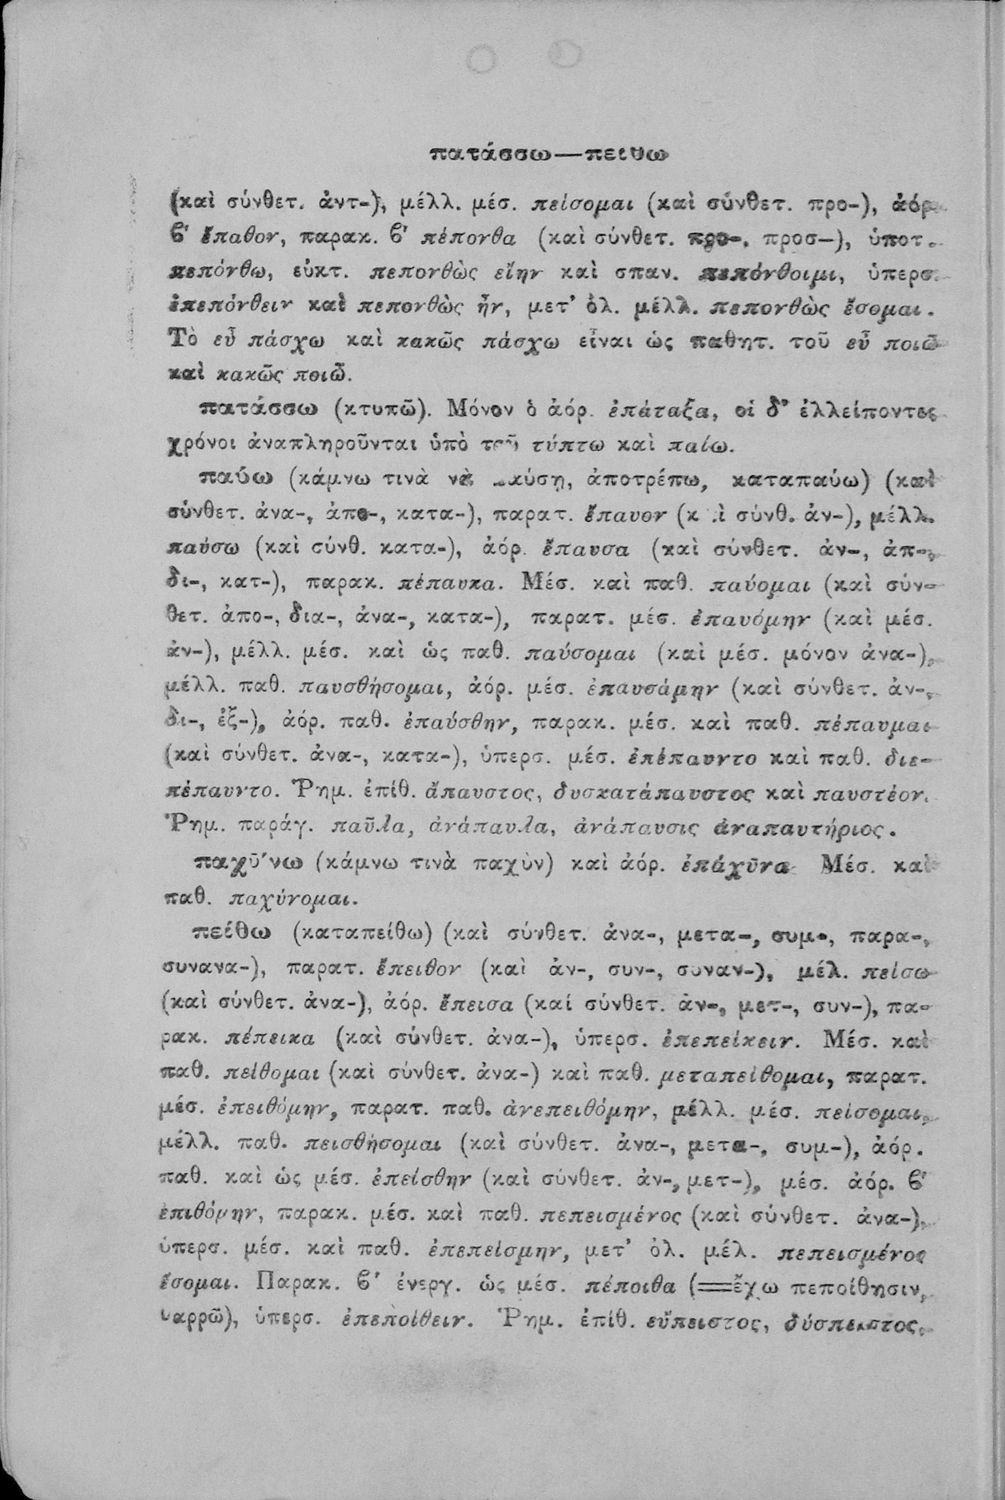 πατάσσω—πείθω
(καὶ σύνθετ. ἀντ-), μέλλ. μέσ. πείσομαι (καὶ σύνθετ. προ-), ἀόρ.
β' ἔπαθον, παρακ. β' πέπονθα (καὶ σύνθετ. προ-, προσ—), ὑποτ.
πεπόνθω, εὐκτ. πεπονθὼς εἴην καὶ σπαν. πεπόνθοιμι, ὑπερσ.
ἐπεπόνθειν καὶ πεπονθὼς ἦν, μετ' ὀλ. μέλλ. πεπονθὼς ἔσομαι.
Τὸ εὖ πάσχω καὶ κακῶς πάσχω εἶναι ὡς παθητ. τοῦ εὖ ποιῶ
καὶ κακῶς ποιῶ.
πατάσσω (κτυπῶ). Μόνον ὁ ἀόρ. ἐπάταξα, οἱ δ' ἐλλείποντες
χρόνοι ἀναπληροῦνται ὑπὸ τοῦ τύπτω καὶ παίω.
παύω (κάμνω τινὰ νὰ παύσῃ, ἀποτρέπω, καταπαύω) (καὶ
σύνθετ. ἀνα-, ἀπο-, κατα-), παρατ. ἔπαυον (καὶ σύνθ. ἀν-), μέλλ.
παύσω (καὶ σύνθ. κατα-), ἀόρ. ἔπαυσα (καὶ σύνθετ. ἀν-, ἀπ-,
δι-, κατ-), παρακ. πέπαυκα. Μέσ. καὶ παθ. παύομαι (καὶ σύν-
θετ. ἀπο-, δια-, ἀνα-, κατα-), παρατ. μέσ. ἐπαυόμην (καὶ μέσ.
ἀν-), μέλλ. μέσ. καὶ ὡς παθ. παύσομαι (καὶ μέσ. μόνον ἀνα-),
μέλλ. παθ. παυσθήσομαι, ἀόρ. μέσ. ἐπαυσάμην (καὶ σύνθετ. ἀν-,
δι-, ἐξ-), ἀόρ. παθ. ἐπαύσθην, παρακ. μέσ. καὶ παθ. πέπαυμαι
(καὶ σύνθετ. ἀνα-, κατα-), ὑπερσ. μέσ. ἐπέπαυντο καὶ παθ. διε-
πέπαυντο. Ῥημ. ἐπίθ. ἄπαυστος, δυσκατάπαυστος καὶ παυστέον.
Ῥημ. παράγ. παῦλα, ἀνάπαυλα, ἀνάπαυσις ἀναπαυτήριος.
παχῡ́νω (κάμνω τινὰ παχὺν) καὶ ἀόρ. ἐπάχῡνα Μέσ. καὶ
παθ. παχύνομαι.
πείθω (καταπείθω) (καὶ σύνθετ. ἀνα-, μετα-, συμ-, παρα-,
συνανα-), παρατ. ἔπειθον (καὶ ἀν-, συν-, συναν-), μέλ. πείσω
(καὶ σύνθετ. ἀνα-), ἀόρ. ἔπεισα (καί σύνθετ. ἀν-, μετ-, συν-), πα-
ρακ. πέπεικα (καὶ σύνθετ. ἀνα-), ὑπερσ. ἐπεπείκειν. Μέσ. καὶ
παθ. πείθομαι (καὶ σύνθετ. ἀνα-) καὶ παθ. μεταπείθομαι, παρατ.
μέσ. ἐπειθόμην, παρατ. παθ. ἀνεπειθόμην, μέλλ. μέσ. πείσομαι,
μέλλ. παθ. πεισθήσομαι (καὶ σύνθετ. ἀνα-, μετα-, συμ-), ἀόρ.
παθ. καὶ ὡς μέσ. ἐπείσθην (καὶ σύνθετ. ἀν-, μετ-), μέσ. ἀόρ. β'
ἐπιθόμην, παρακ. μέσ. καὶ παθ. πεπεισμένος (καὶ σύνθετ. ἀνα-),
ὑπερσ. μέσ. καὶ παθ. ἐπεπείσμην, μετ' ὀλ. μέλ. πεπεισμένος
ἔσομαι. Παρακ. β' ἐνεργ. ὡς μέσ. πέποιθα (=ἔχω πεποίθησιν,
θαρρῶ), ὑπερσ. ἐπεποίθειν. Ῥημ. ἐπίθ. εὔπειστος, δύσπειστος,